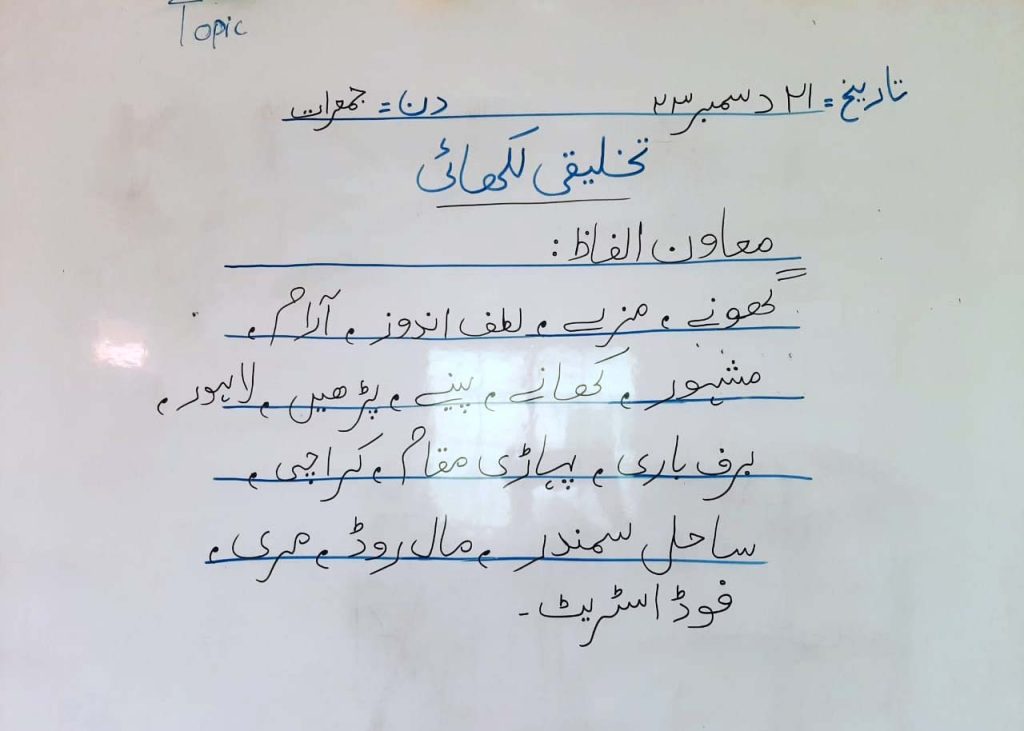 Topic
تاریخ = ۲۱ دسمبر ۲۳ دن = جمعرات
تخلیقی لکھائی
معاون الفاظ :
مزے ، لطف اندوز ، آرام ،
مشہور ، کھانے ، پینے ، پڑھیں ، لاہور ،
برف باری ، پہاڑی مقام ، کراچی ،
ساحل سمندر ، مال روڈ ، مری ،
فوڈ اسٹریٹ ۔